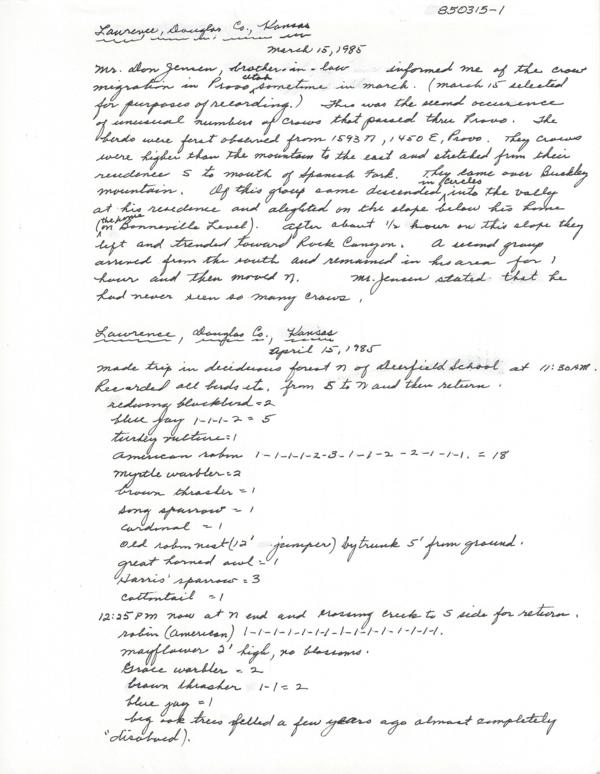 850315-1
Lawrence, Douglas Co., Kansas
March 15, 1985
Mr. Don Jensen, brother-in-law informed me of the crow
migration in Provo, Utah sometime in march. (march 15 selected
for purposes of recording.) This was the second occurence
of unusual numbers of crows that passed thru Provo. The
birds were first observed from 1593 N, 1450 E, Provo. They crows
were higher than the mountain to the east and stretched from their
residence S to mouth of Spanish Fork. They came over Buckley
mountain. Of this group some descended in circles into the vally
at his residence and aleghted on the slope below his home
(on the Bonneville Level). After about 1/2 hour on this slope they
left and trended toward Rock Canyon. A second group
arrived from the south and remained in his area for 1
hour and then moved N. Mr. Jensen stated that he
had never seen so many crows.
Lawrence, Douglas Co., Kansas
April 15, 1985
made trip in deciduous forest N of Deerfield School at 11:30 AM.
Recorded all birds etc. from S to N and then return.
redwing blackbird = 2
blue jay 1-1-1-2 = 5
turkey vulture = 1
American robin 1-1-1-1-2-3-1-1-2-2-1-1-1. = 18
myrtle warbler = 2
brown thrasher = 1
song sparrow = 1
cardinal = 1
old robin nest (12' juniper) by trunk 5' from ground.
great horned owl = 1
Harris' sparrow = 3
cottontail = 1
12:25 PM now at N end and crossing creek to S side for return.
robin (American) 1-1-1-1-1-1-1-1-1-1-1-1-1-1.
mayflower 2' high, no blossoms.
Grace warbler = 2
brown thrasher 1-1 = 2
blue jay = 1
big oak trees felled a few years ago almost completely
"disolved").